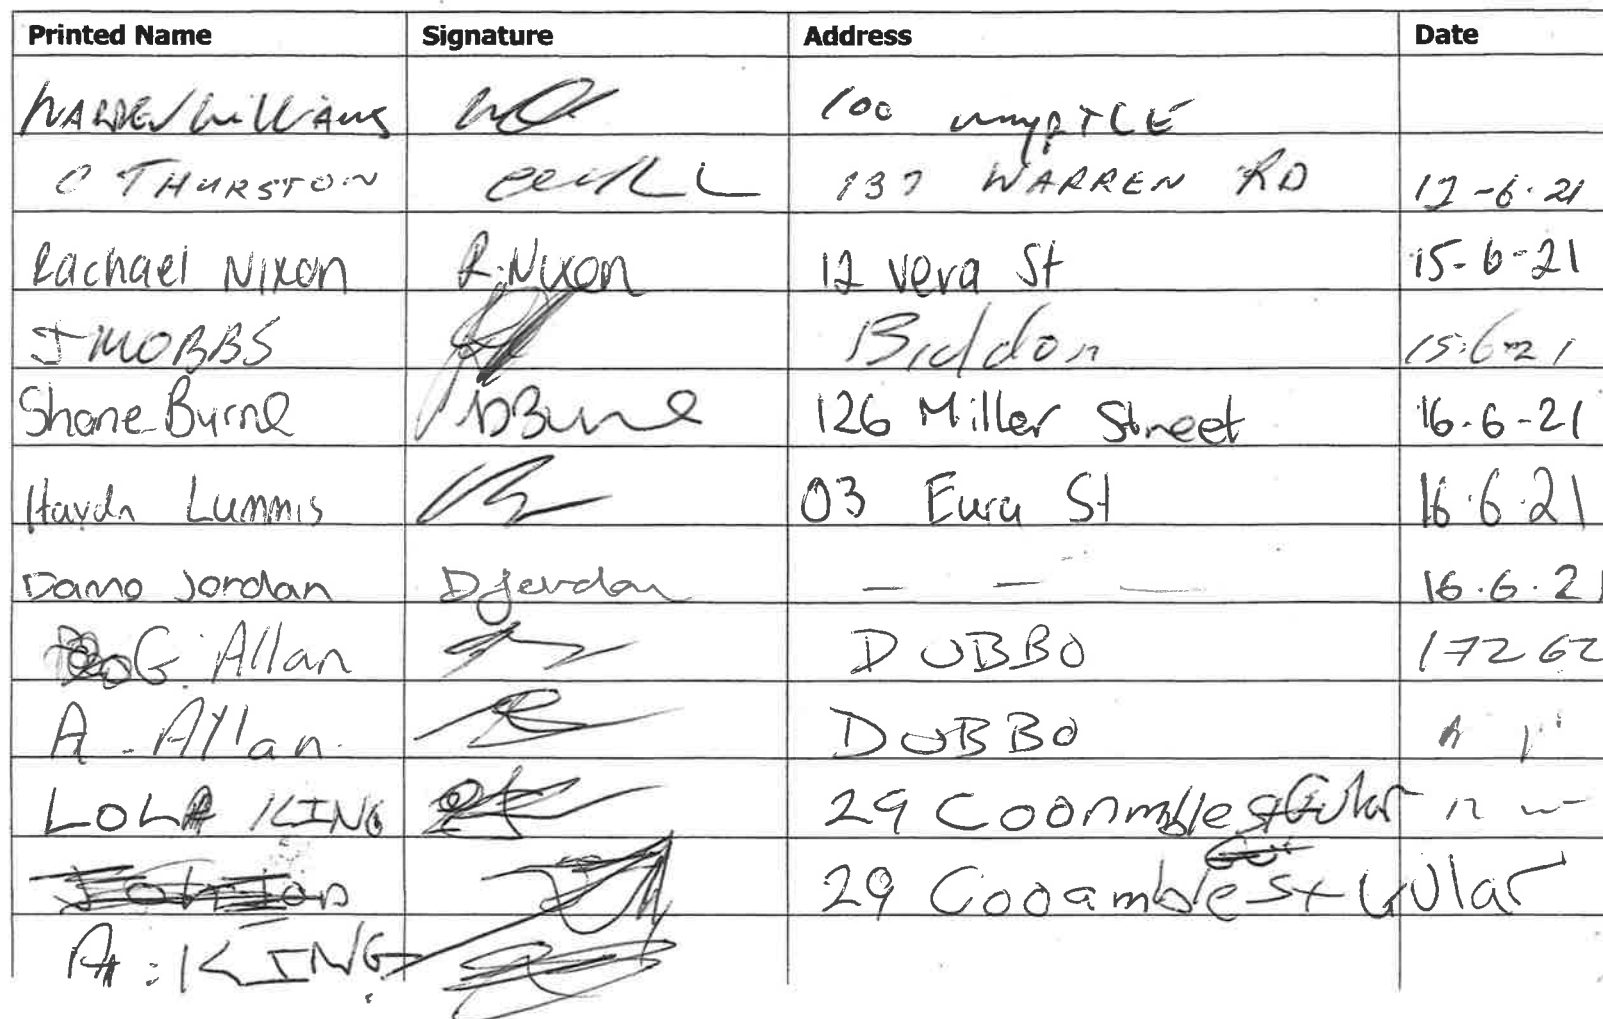 Printed Name Signature Address Date
WARREN Williams 100 MYRTLE
C THURSTON 137 WARREN RD 12-6.21
Rachael Nixon R.Nixon 12 Vera St 15-6-21
J MOBBS Biddon 15.6-21
Shane Byrne SByrne 126 Miller Street 16-6-21
Haydn Lummis 03 Eura St 16.6.21
Damo Jordan DJordan — — — 16.6.21
G. Allan DUBBO 17262
A. Allan. DUBBO " "
LOLA KING 29 Coonmble st Gular " "
29 Cooamble St Gular
A. KING